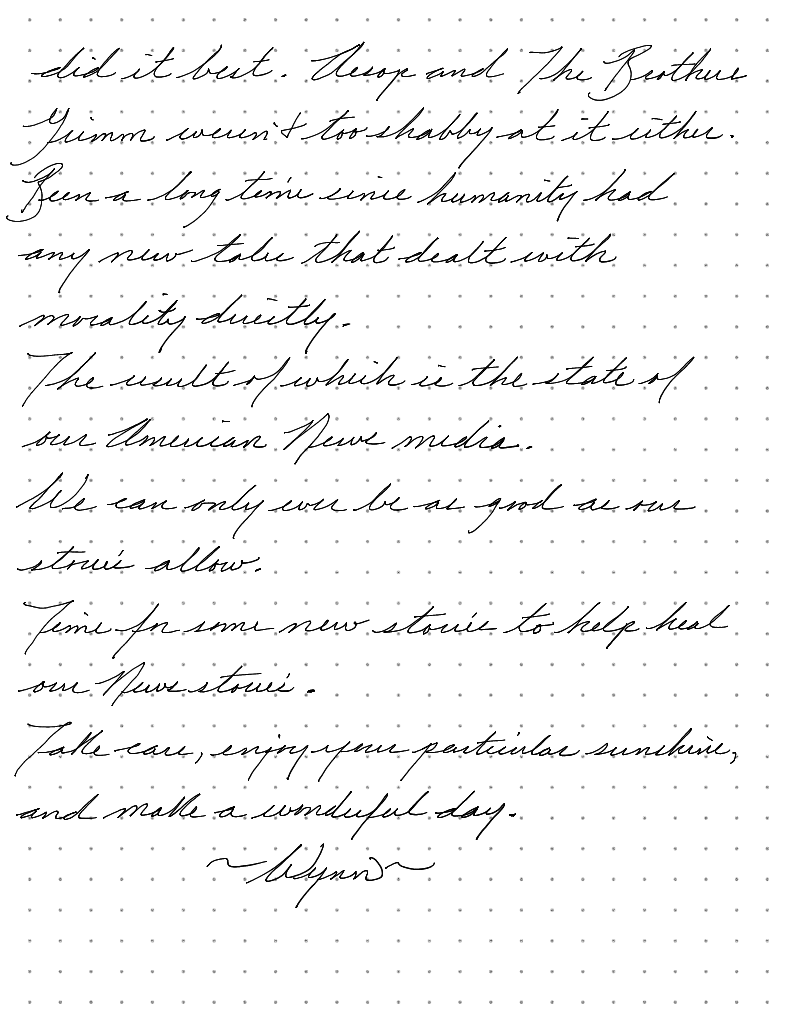 did it best. Aesop and The Brothers
Grimm weren't too shabby at it either.
Been a long time since humanity had
any new tales that dealt with
morality directly.
The result of which is the state of
our American News media.
We can only ever be as good as our
stories allow.
Time for some new stories to help heal
our News stories.
Take care, enjoy your particular sunshine,
and make a wonderful day.
~Wynn~